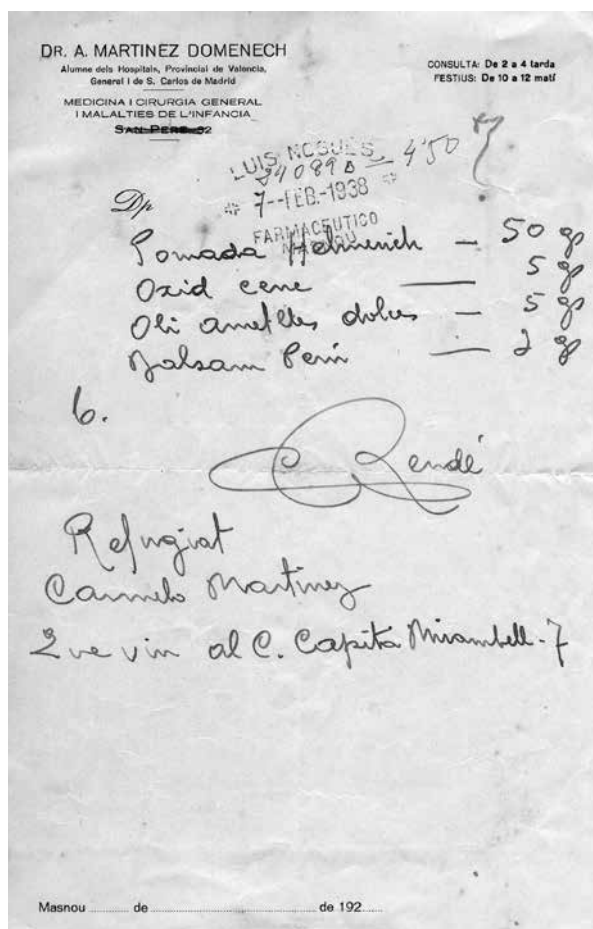 DR. A. MARTINEZ DOMENECH
Alumne dels Hospitals, Provincial de Valencia,
General i de S. Carlos de Madrid
MEDICINA I CIRURGIA GENERAL
I MALALTIES DE L'INFANCIA
SAN PERE 32
CONSULTA: De 2 a 4 tarda
FESTIUS: De 10 a 12 matí
LUIS NOGUÉS
24089 B — 4'50
7--FEB.-1938
FARMACEUTICO
MASNOU
Dp
Pomada Helmerich — 50 gr
Oxid cenc — 5 gr
Oli ametlles dolces — 5 gr
Balsam Perú — 2 gr
C Rendé
Refugiat
Carmelo Martinez
que viu al C. Capità Mirambell - 7
Masnou ........ de ........ de 192......